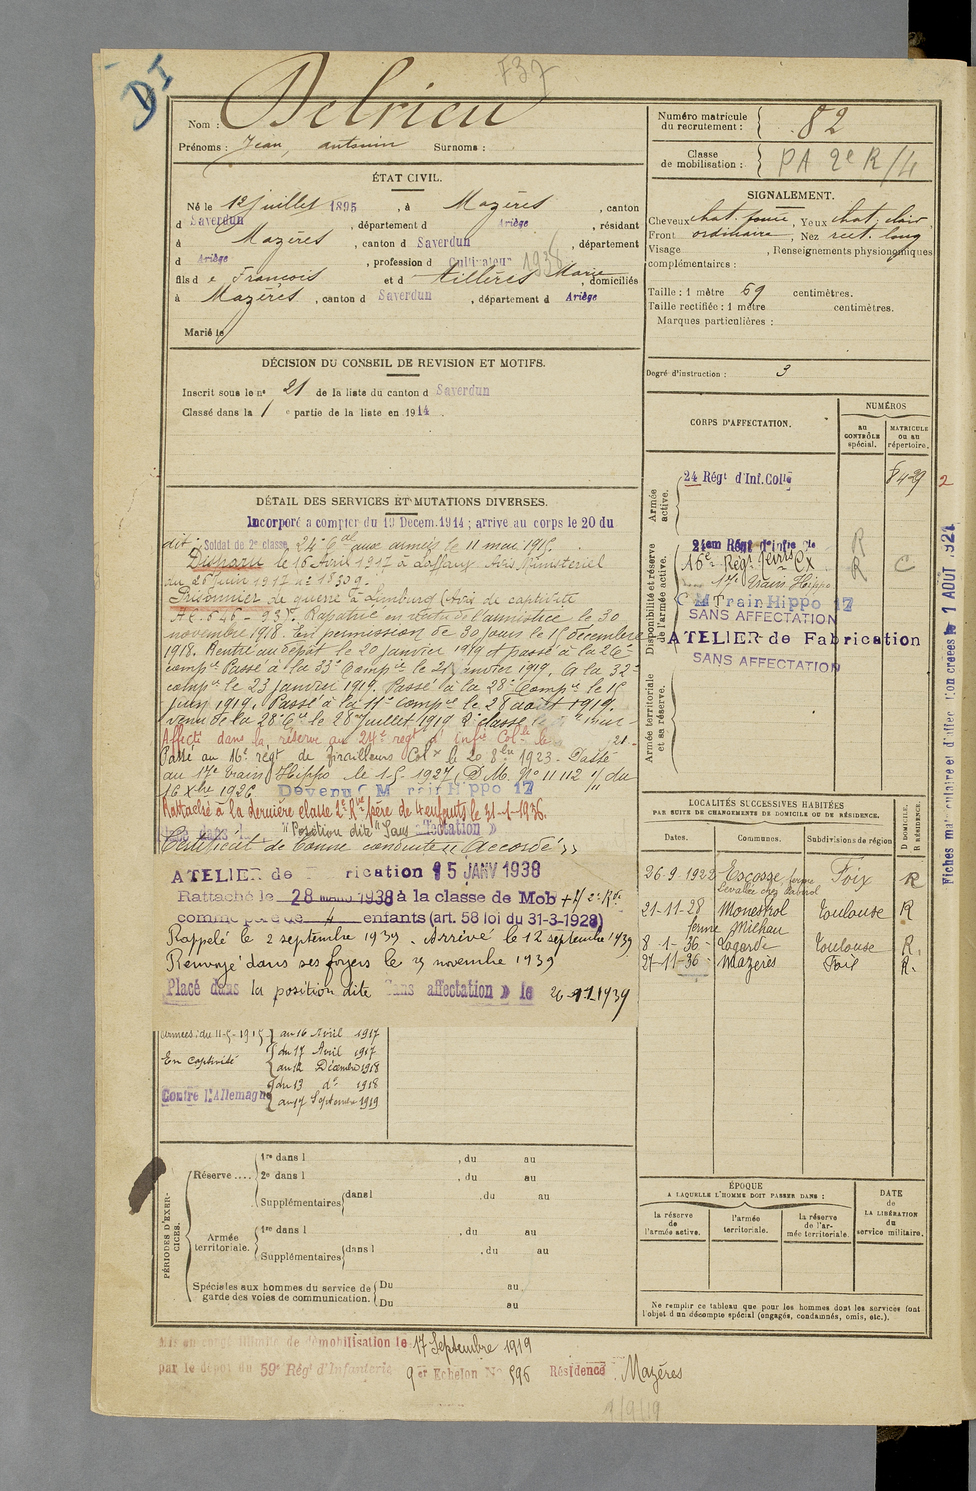 F37
DI
Nom : Delrieu
Prénoms : Jean, antonin Surnoms :
Numéro matricule du recrutement : 82
Classe de mobilisation : PA 2e R/4
ÉTAT CIVIL.
Né le 12 juillet 1895, à Mazères, canton
d Saverdun, département d Ariège, résidant
à Mazères, canton d Saverdun, département
d Ariège, profession d Cultivateur 1936
fils d e François et d Tillères Marie, domiciliés
à Mazères, canton d Saverdun, département d Ariège
Marié le
SIGNALEMENT.
Cheveux chat. foncé, Yeux chat. clair
Front ordinaire, Nez rect. long
Visage , Renseignements physionomiques
complémentaires :
Taille : 1 mètre 69 centimètres.
Taille rectifiée : 1 mètre centimètres.
Marques particulières :
Degré d'instruction : 3
DÉCISION DU CONSEIL DE REVISION ET MOTIFS.
Inscrit sous le n° 21 de la liste du canton d Saverdun
Classé dans la 1 e partie de la liste en 1914.
CORPS D'AFFECTATION.
NUMÉROS
au CONTRÔLE spécial.
MATRICULE ou au répertoire.
Armée active.
24 Régt d'Inf. Colle
6429
2
Disponibilité et réserve de l'armée active.
24em Régt d'Infie Cle
R
16e Régt Tirrs Cx
R C
17e Train Hippo
C M Train Hippo 17
SANS AFFECTATION
ATELIER de Fabrication
SANS AFFECTATION
Armée territoriale et sa réserve.
DÉTAIL DES SERVICES ET MUTATIONS DIVERSES.
Incorporé à compter du 19 Décem. 1914 ; arrivé au corps le 20 du
dit. Soldat de 2e classe. 24 Cal aux armées le 11 mai 1915.
Disparu le 16 Avril 1917 à Laffaux Avis Ministériel
du 26 juin 1917 n° 1839.
Prisonnier de guerre à Limburg (Avis de captivité
Rapatrié en vertu de l'armistice le 30
novembre 1918. En permission de 30 jours le 15 décembre
1918. Rentré au dépôt le 20 janvier 1919 et passé à la 26e
compie Passé à la 33e Compie le 21 janvier 1919. à la 32e
compie le 23 janvier 1919. Passé à la 28e Compie le 15
juin 1919. Passé à la 11e compie le 28 août 1919.
venu de la 28e Cie le 28 juillet 1919
Affecté dans la réserve au 24e régt d'infie Colle le 21.
Passé au 16e régt de Tirailleurs Colx le 20 8bre 1923. Passé
au 17e Train Hippo le 1-5-1927 (D.M. N° 11112 du
16 Xbre 1926. Devenu C M Train Hippo 17
Rattaché à la dernière classe 2e Rve père de 4 enfants le 31-1-1936.
dans la "Position dite" Sans affectation »
Certificat de Bonne conduite « Accordé »
ATELIER de Fabrication 15 JANV 1938
Rattaché le 28 1938 à la classe de Mob
comme père de 4 enfants (art. 58 loi du 31-3-1928)
Rappelé le 2 septembre 1939. Arrivé le 12 septembre 1939
Renvoyé dans ses foyers le 3 novembre 1939
Placé dans la position dite Sans affectation » le 1939
LOCALITÉS SUCCESSIVES HABITÉES
PAR SUITE DE CHANGEMENTS DE DOMICILE OU DE RÉSIDENCE.
Dates. Communes. Subdivisions de région
D DOMICILE. R RÉSIDENCE.
26-9-1922 Escosse ferme Foix R
21-11-28 Monestrol Toulouse R
ferme Michau
8-1-36 Lagarde Toulouse R.
27-11-36 Mazères Foix R.
Fiches matriculaire et d'affectation créées le 1 AOUT 1921
Armées : du 11-5-1915 au 16 Avril 1917
En captivité du 17 Avril 1917
au 12 Décembre 1918
du 13 d° 1918
Contre l'Allemagne au 17 Septembre 1919
PÉRIODES D'EXERCICES.
Réserve....
1re dans l , du au
2e dans l , du au
Supplémentaires dans l , du au
Armée territoriale.
1re dans l , du au
Supplémentaires dans l , du au
Spéciales aux hommes du service de garde des voies de communication.
Du au
Du au
ÉPOQUE
A LAQUELLE L'HOMME DOIT PASSER DANS :
la réserve de l'armée active.
l'armée territoriale.
la réserve de l'armée territoriale.
DATE de LA LIBÉRATION du service militaire.
Ne remplir ce tableau que pour les hommes dont les services font
l'objet d'un décompte spécial (engagés, condamnés, omis, etc.).
Mis en congé illimité de démobilisation le 17 Septembre 1919
par le dépôt du 59e Régt d'Infanterie 9er Echelon N° 596 Résidence Mazères